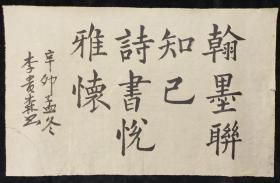 翰墨聯
知己
詩書悅
雅懷
辛卯孟冬
李貴森书